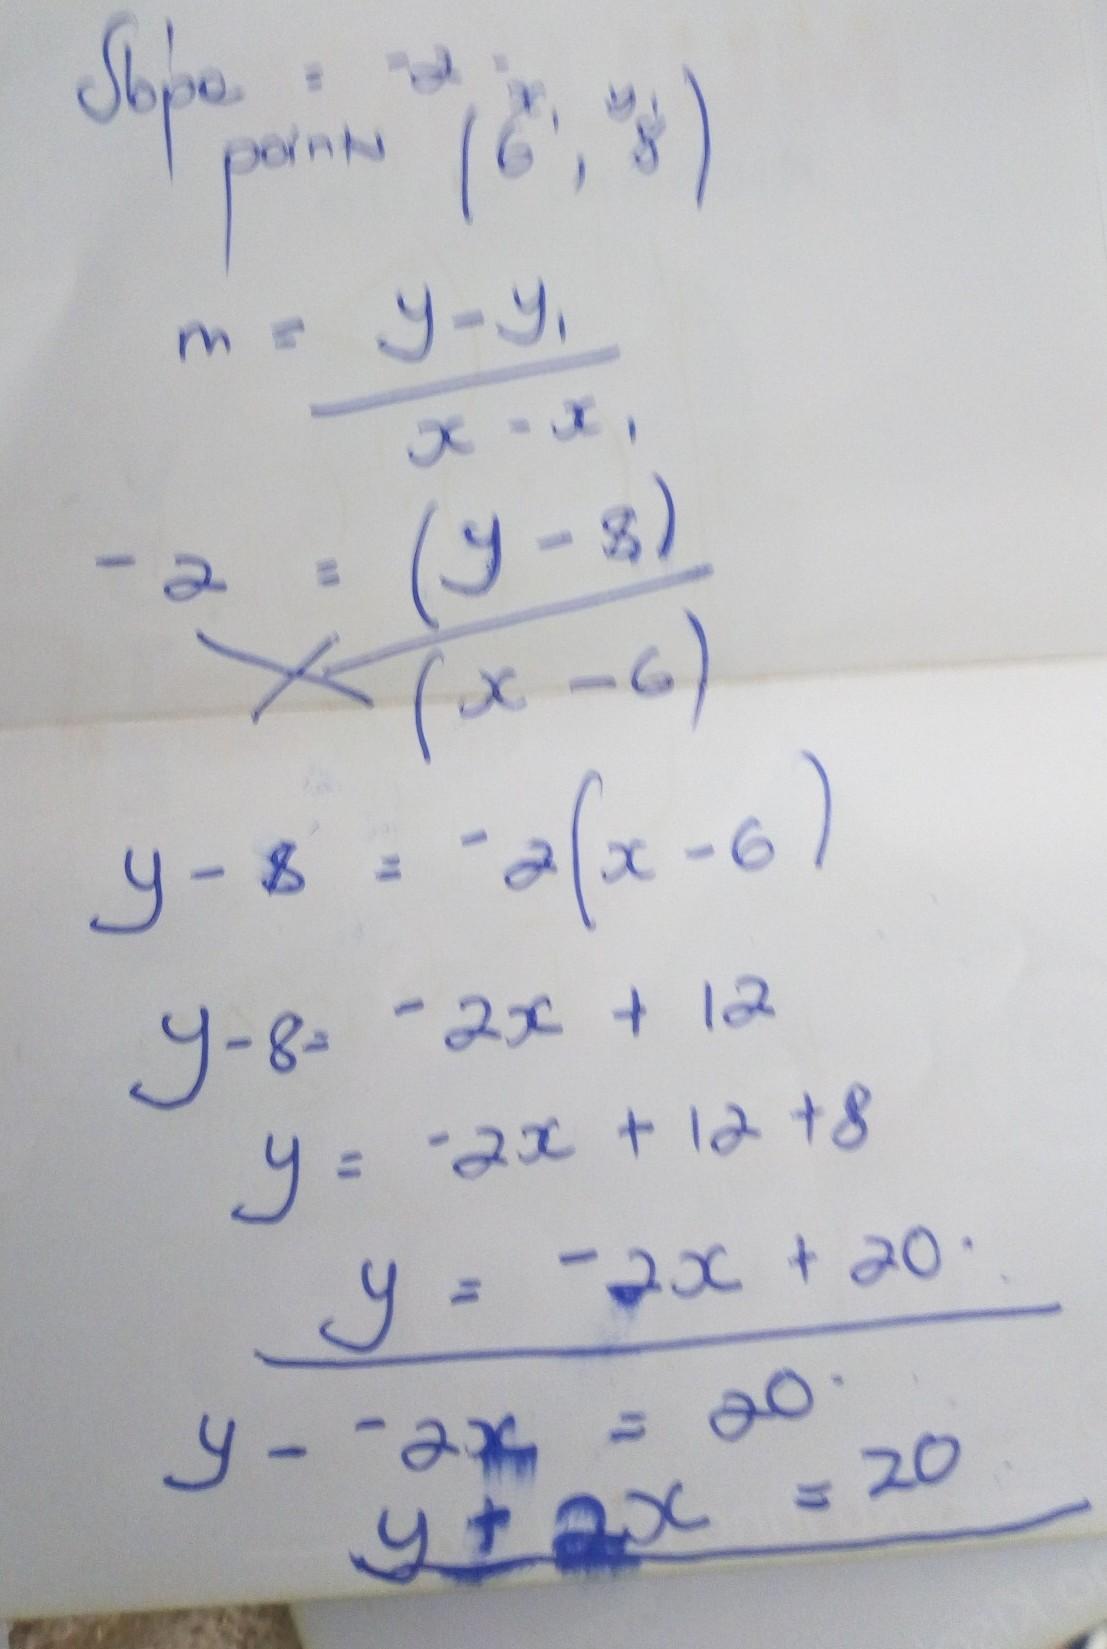 Slope = -2
x₁ y₁
points (6, 8)
m = y - y₁
x - x₁
-2 = (y - 8)
(x - 6)
y - 8 = -2(x - 6)
y - 8 = -2x + 12
y = -2x + 12 + 8
y = -2x + 20.
y - -2x = 20.
y + 2x = 20